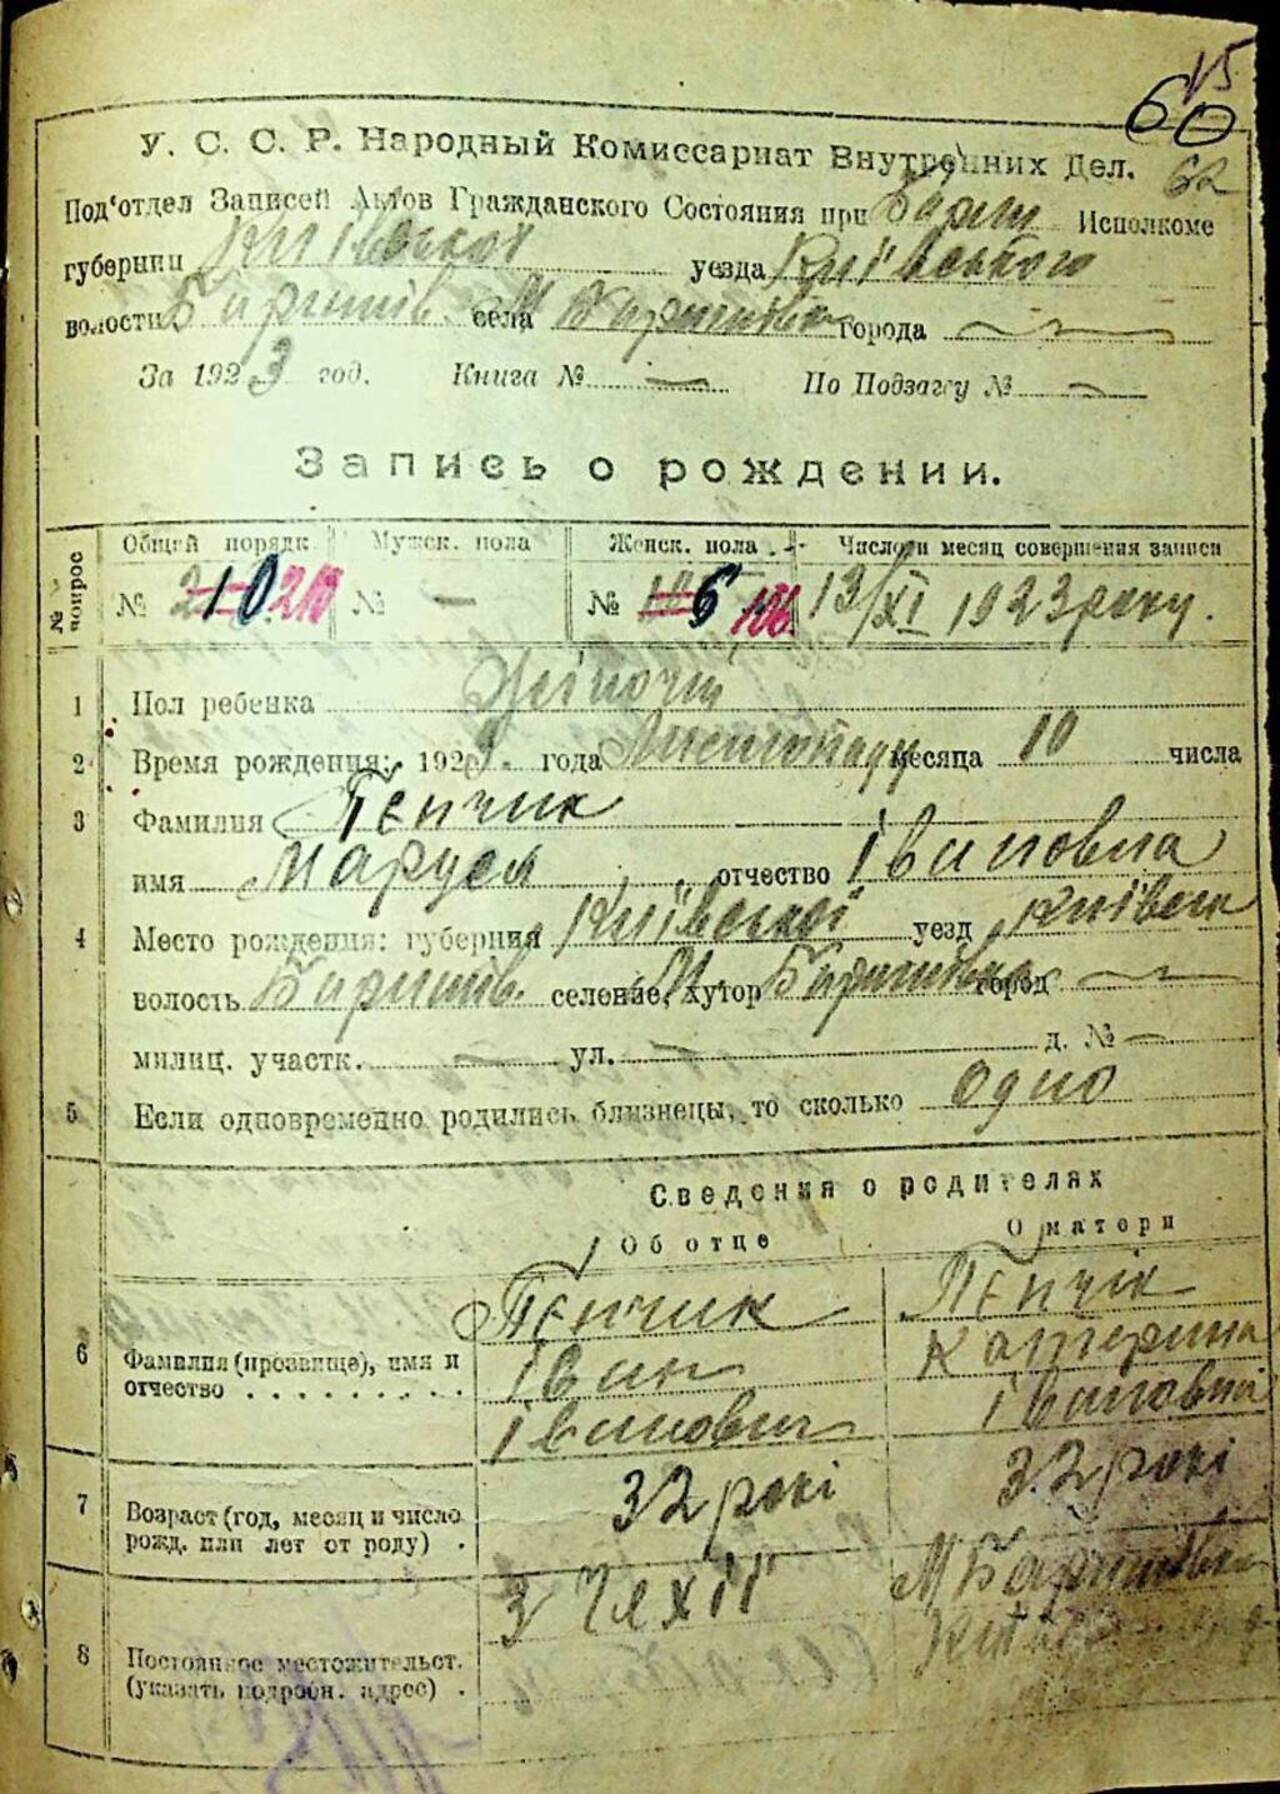 15
60
62
У. С. С. Р. Народный Комиссариат Внутренних Дел.
Под‘отдел Записей Актов Гражданского Состояния при Бариш. Исполкоме
губернии Київської уезда Київського
волости Баришів. села М. Баришівка города —
За 1923 год. Книга № — По Подзагсу № —
Запись о рождении.
№ вопрос Общей порядк. Мужск. пола Женск. пола Число и месяц совершения записи
№ 210 210 № — № 106 106 13/XI 1923 року.
1 Пол ребенка Жіночий
2 Время рождения: 1923. года Листопаду месяца 10 числа
3 Фамилия Пєнчик
имя Маруся отчество Івановна
4 Место рождения: губерния Київської уезд Київськ
волость Баришів. селение, хутор М. Баришівка город —
милиц. участк. — ул. — д. № —
5 Если одновременно родились близнецы, то сколько одно
Сведения о родителях
Об отце О матери
Пєнчик Пєнчік
6 Фамилия (прозвище), имя и Іван Катерина
отчество Іванович Івановна
7 Возраст (год, месяц и число 32 рокі 32 рокі
рожд. или лет от роду)
З Чехії М Баришівка
8 Постоянное местожительст.
(указать подробн. адрес)